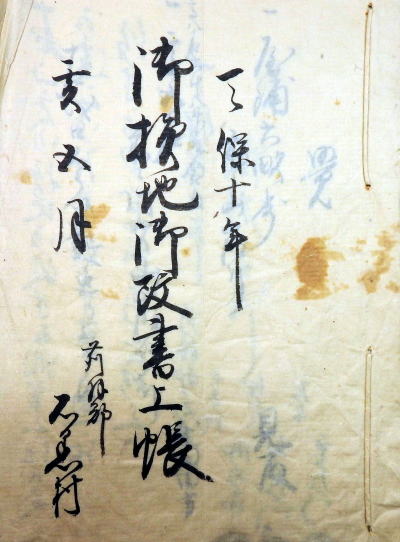 天保十年
御検地御改書上帳
亥五月
苅羽郡
石黒村